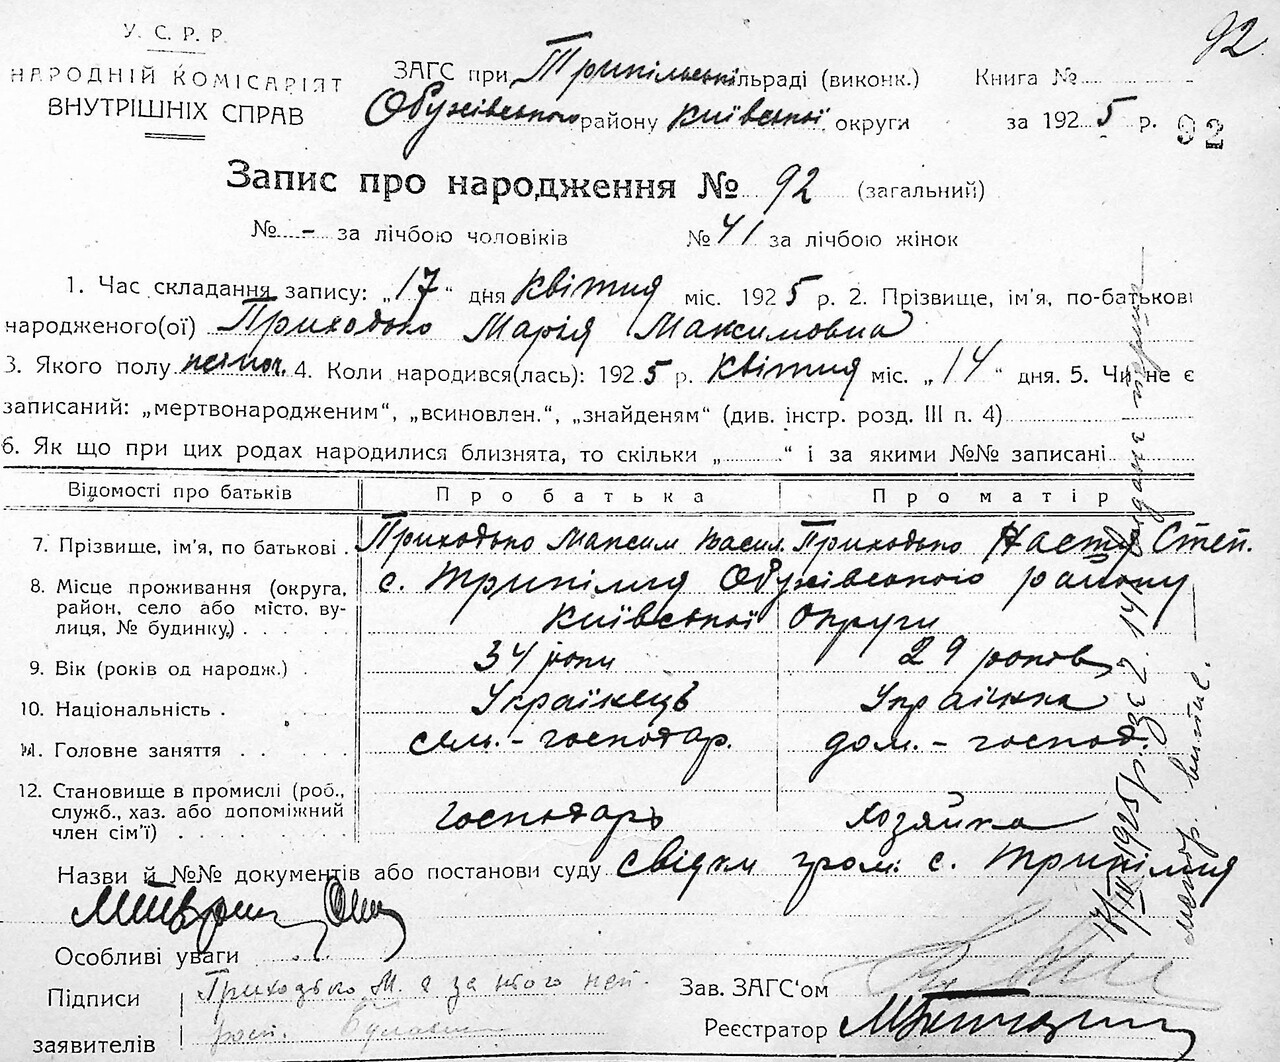 92
У. С. Р. Р.
НАРОДНІЙ КОМІСАРІЯТ
ВНУТРІШНІХ СПРАВ
ЗАГС при Трипільській сільраді (виконк.)
Обухівського району Київської округи
Книга №
за 1925 р.
92
Запис про народження № 92 (загальний)
№ - за лічбою чоловіків № 41 за лічбою жінок
1. Час складання запису: „17" дня квітня міс. 1925 р. 2. Прізвище, ім'я, по-батькові
народженого(ої) Приходько Марія Максимовна
3. Якого полу жіноч. 4. Коли народився(лась): 1925 р. квітня міс. „14" дня. 5. Чи не є
записаний: „мертвонародженим", „всиновлен.", „знайденям" (див. інстр. розд. III п. 4)
6. Як що при цих родах народилися близнята, то скільки „ " і за якими №№ записані
Відомості про батьків Про батька Про матір
7. Прізвище, ім'я, по батькові Приходько Максим Васил. Приходько Настя Степ.
8. Місце проживання (округа, район, село або місто, вулиця, № будинку) с. Трипілля Обухівського району
Київської округи
9. Вік (років од народж.) 34 роки 29 років
10. Національність Українець Українка
11. Головне заняття сільс.-господар. дом.-господ.
12. Становище в промислі (роб.,
служб., хаз. або допоміжний
член сім'ї) господарь хозяйка
Назви й №№ документів або постанови суду свідки гром. с. Трипілля
Особливі уваги
Підписи
заявителів
Приходько М. а за нього неп.
розп.
Зав. ЗАГС'ом
Реєстратор